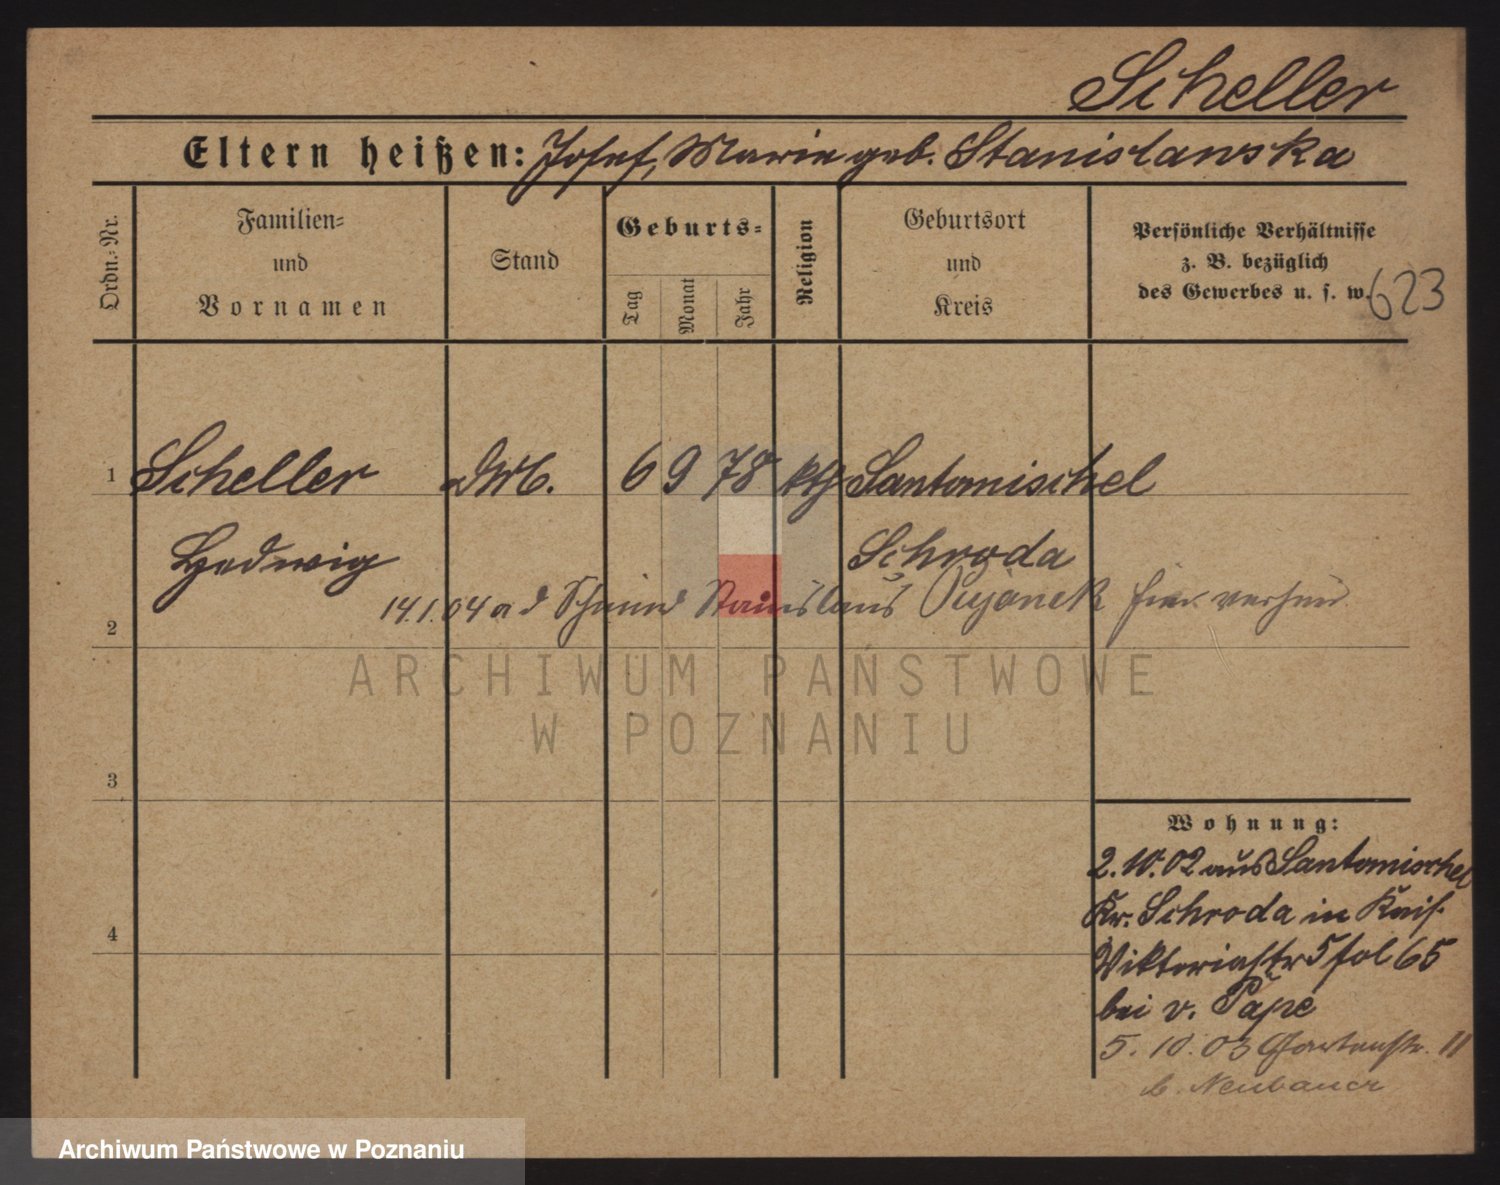 Scheller
Eltern heißen: Josef, Marie geb. Stanislawska
Ordn.-Nr.
Familien-
und
Vornamen
Stand
Geburts-
Tag
Monat
Jahr
Religion
Geburtsort
und
Kreis
Persönliche Verhältnisse
z. B. bezüglich
des Gewerbes u. s. w.
623
1 Scheller 6 9 78 kth Santomischel
Hedwig Schroda
14.1.04 a d Schmied Stanislaus Pujanek hier verheir
2
ARCHIWUM PAŃSTWOWE
W POZNANIU
3
4
Wohnung:
2.10.02 aus Santomischel
Kr. Schroda in
Viktoriastr 5 fol 65
bei v. Pape
5.10.03 Gartenstr. 11
b. Neubauer
Archiwum Państwowe w Poznaniu